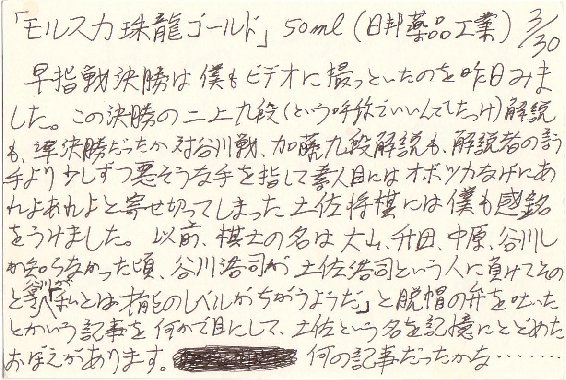 「モルスカ珠龍ゴールド」50ml (日邦薬品工業) 3/30
早指戦決勝は僕もビデオに撮っといたのを昨日みま
した。この決勝の二上九段(という呼称でいいんでしたっけ)解説
も、準決勝だったか対谷川戦、加藤九段解説も、解説者の言う
手より少しずつ悪そうな手を指して素人目にはオボツカなげにあ
れよあれよと寄せ切ってしまった土佐将棋には僕も感銘
をうけました。以前、棋士の名は大山、升田、中原、谷川し
か知らなかった頃、谷川浩司が土佐浩司という人に負けてその
とき谷川が「
とは才能のレベルがちがうようだ」と脱帽の弁を吐いた
とかいう記事を何かで目にして、土佐という名を記憶にとどめた
おぼえがあります。 何の記事だったかな‥‥‥